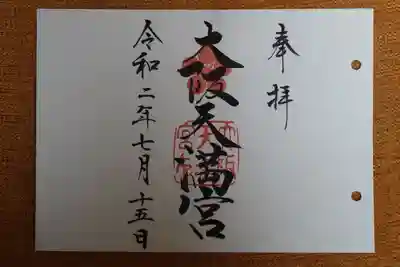 奉拝
大阪天満宮
令和二年七月十五日